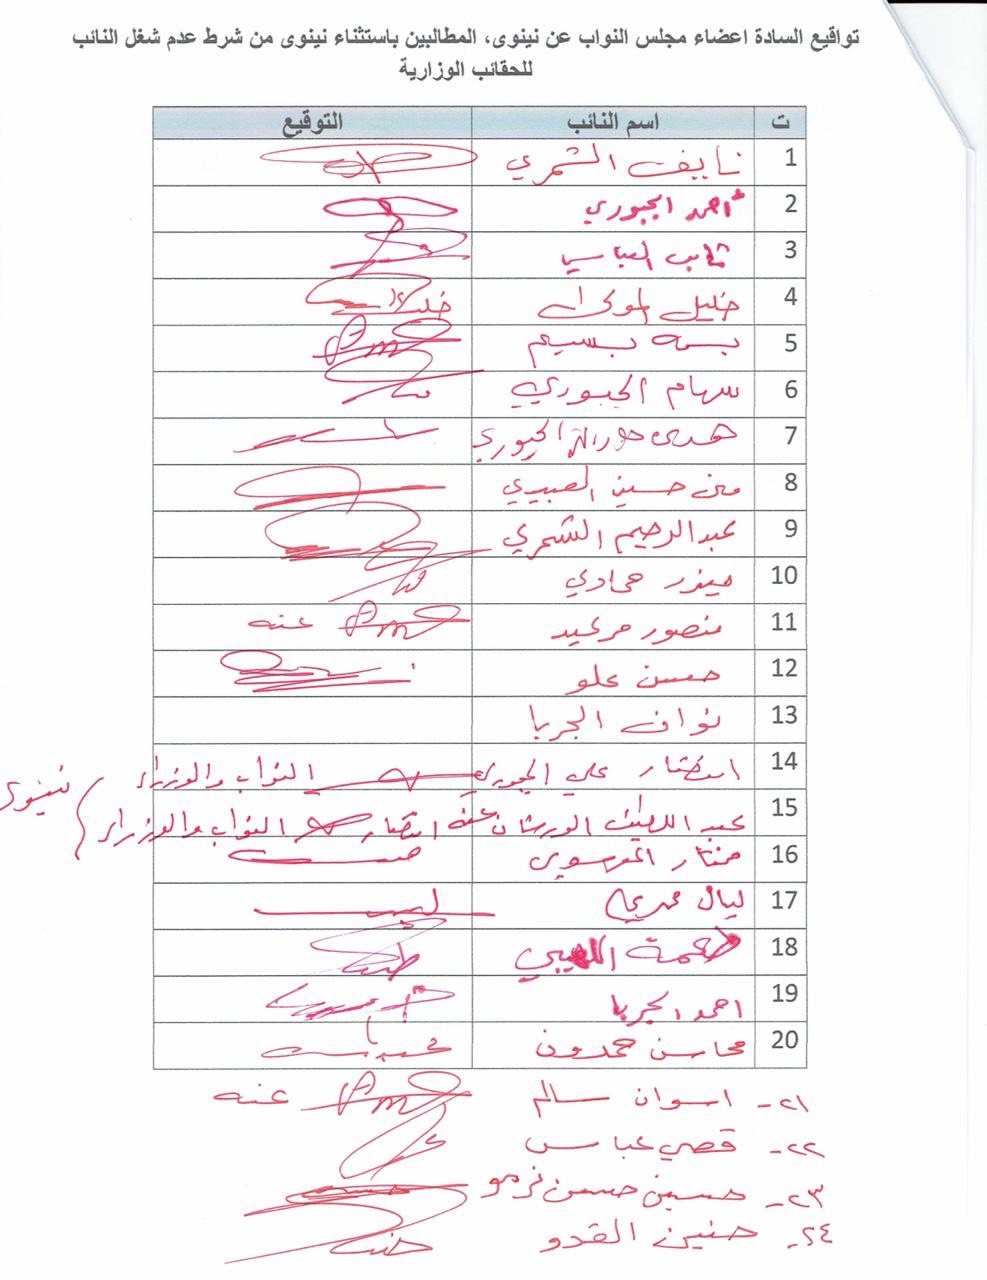 تواقيع السادة اعضاء مجلس النواب عن نينوى، المطالبين باستثناء نينوى من شرط عدم شغل النائب
للحقائب الوزارية
ت اسم النائب التوقيع
1 نايف الشمري
2 احمد الجبوري
3 العباسي
4 خليل
5 بسمه بسيم
6 سهام الجبوري
7 هدى الجبوري
8 حسين العبيدي
9 عبد الرحيم الشمري
10 حمادي
11 منصور مرعيد عنه
12 حسن علو
13 نواف الجربا
14 انتصار علي الجبوري النواب والوزراء
نينوى
15 عبد اللطيف الورشان عنه انتصار النواب والوزراء
16 مختار الموسوي
17 ليال
18 طعمة اللهيبي
19 احمد الجربا
20 محاسن حمدون
٢١- اسوان سالم عنه
٢٢- قصي عباس
٢٣- حسين حسن نرمو
٢٤- حنين القدو